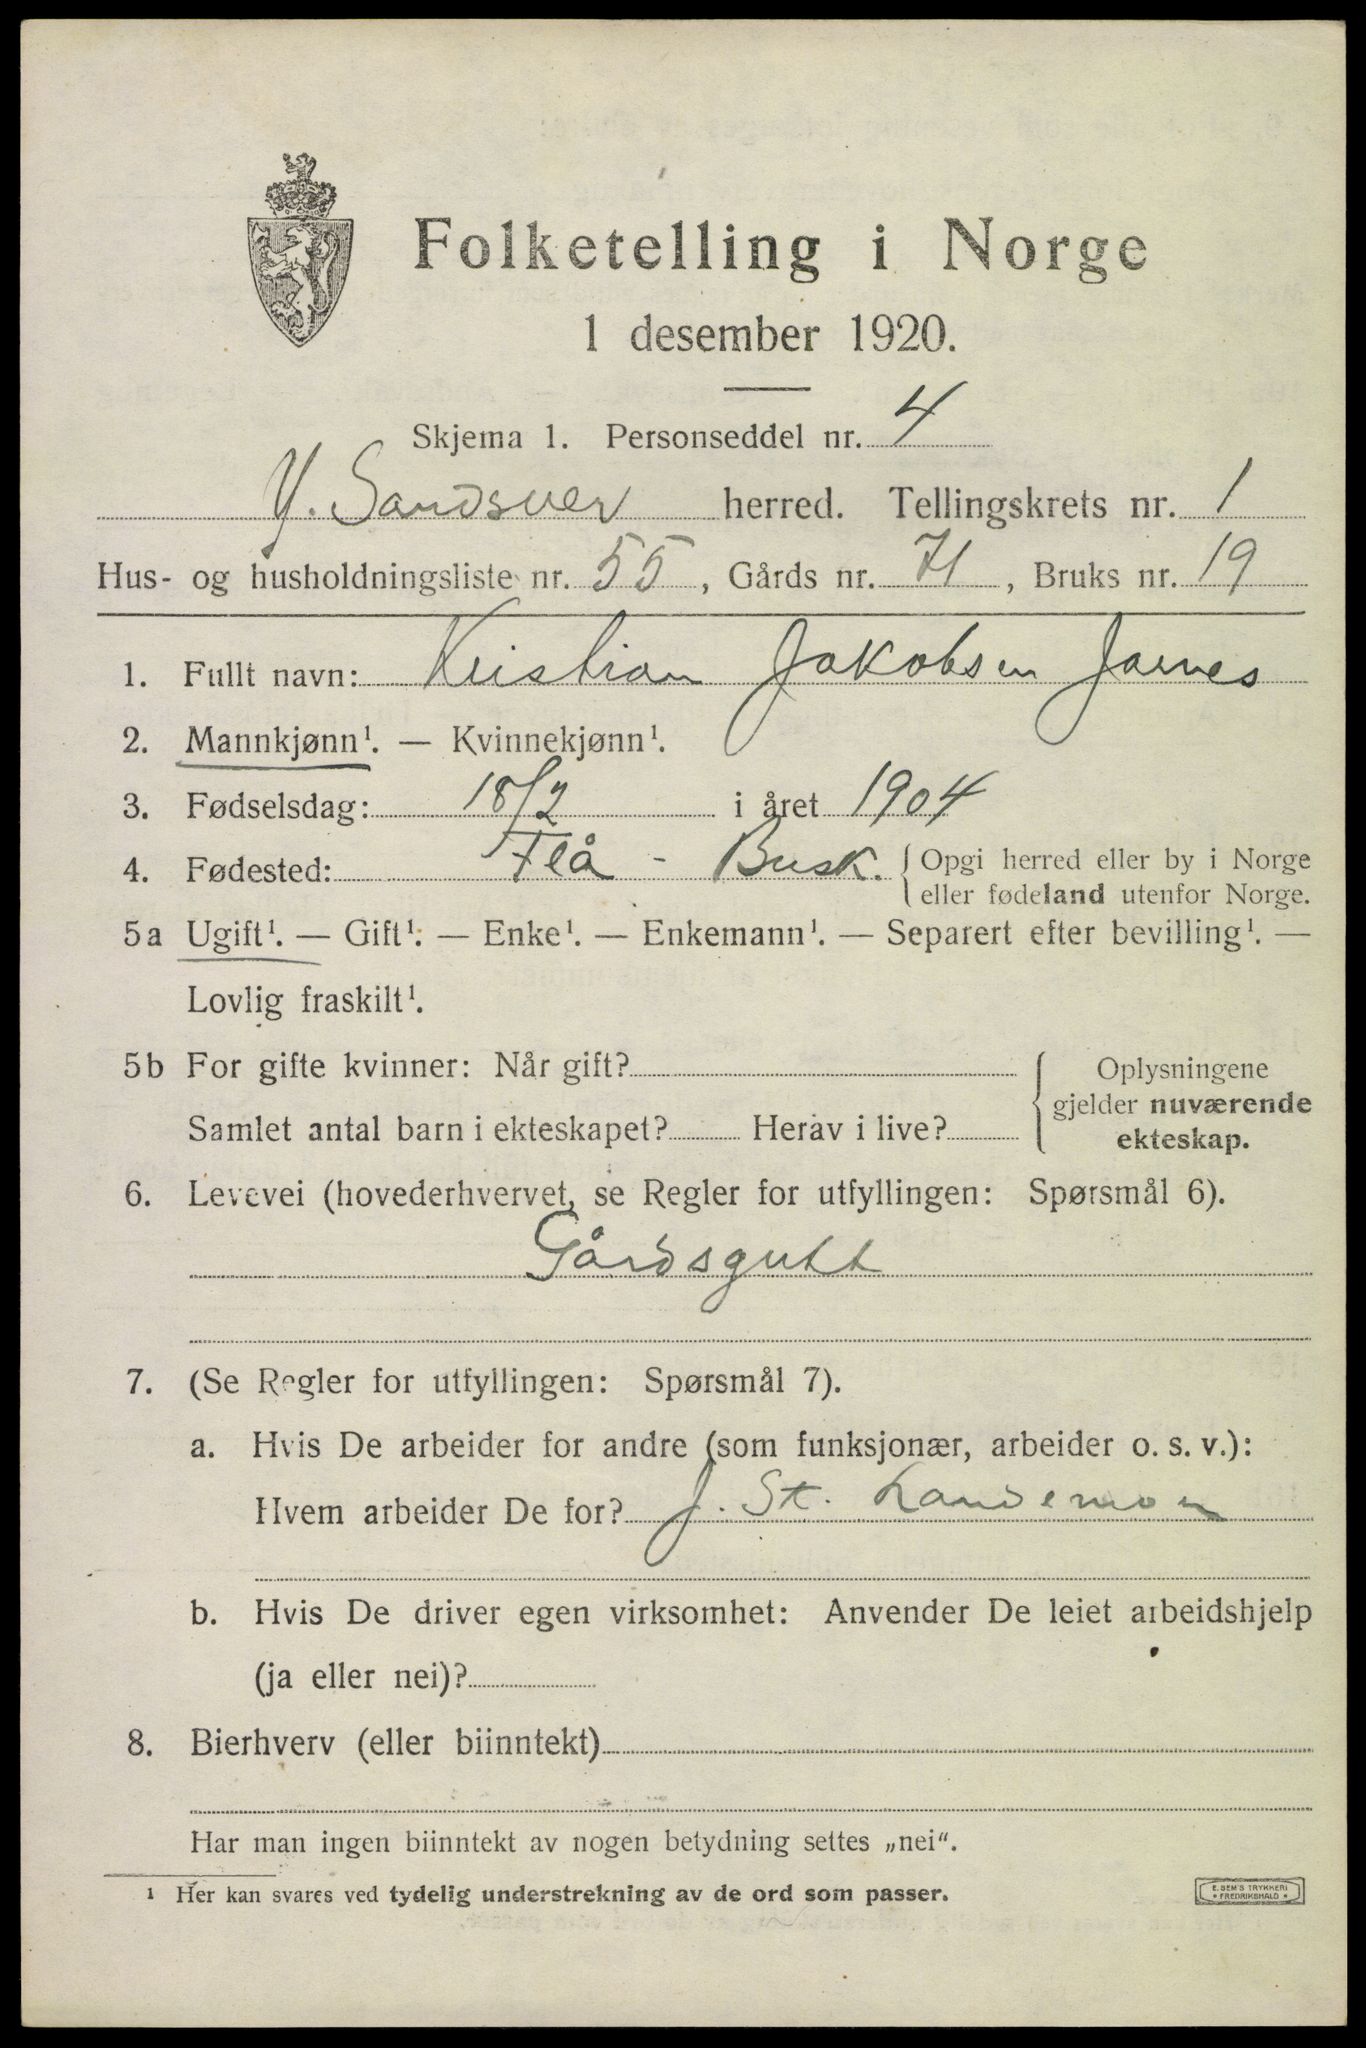 Folketelling i Norge
1 desember 1920.
Skjema 1. Personseddel nr. 4
Y. Sandsver herred. Tellingskrets nr. 1
Hus- og husholdningsliste nr. 55, Gårds nr. 71, Bruks nr. 19
1. Fullt navn: Kristian Jakobsen
2. Mannkjønn¹. — Kvinnekjønn¹.
3. Fødselsdag: 18/2 i året 1904
4. Fødested: Flå - Busk. { Opgi herred eller by i Norge
eller fødeland utenfor Norge.
5a Ugift¹. — Gift¹. — Enke¹. — Enkemann¹. — Separert efter bevilling¹. —
Lovlig fraskilt¹.
5b For gifte kvinner: Når gift?
Samlet antal barn i ekteskapet? Herav i live?
{ Oplysningene
gjelder nuværende
ekteskap.
6. Levevei (hovederhvervet, se Regler for utfyllingen: Spørsmål 6).
Gårdsgutt
7. (Se Regler for utfyllingen: Spørsmål 7).
a. Hvis De arbeider for andre (som funksjonær, arbeider o. s. v.):
Hvem arbeider De for? J. St. Landemoen
b. Hvis De driver egen virksomhet: Anvender De leiet arbeidshjelp
(ja eller nei)?
8. Bierhverv (eller biinntekt)
Har man ingen biinntekt av nogen betydning settes „nei“.
¹ Her kan svares ved tydelig understrekning av de ord som passer.
E. SEM'S TRYKKERI
• FREDRIKSHALD •